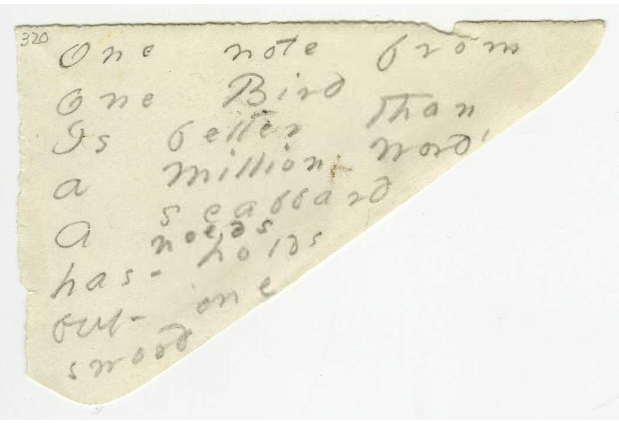 320
One note from
one Bird
Is better than
a million word
A scabbard
needs
has - holds
but - one
sword